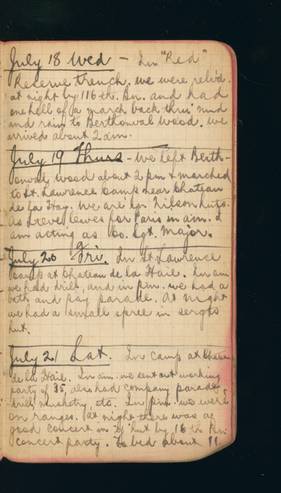 July 18 Wed - In "Red"
Reserve trench. we were reliv'd
at night by 116th. Bn. and had
one hell of a march back thru' mud
and rain to Berthonval Wood. we
arrived about 2 am.
July 19 Thurs - We left Berth-
onval wood about 2 pm & marched
to St. Lawrence Camp near Chateau
de la Hay. We are in Nilson huts.
leaves for Paris in am. I
am acting as Co. Sgt. Major.
July 20 Fri. In St Lawrence
Camp at Chateau de la Haie. In am
we had drill, and in p.m. we had a
bath and pay parade. At night
we had a small spree in sergts
hut.
July 21 Sat. In camp at Chateau
de la Haie. In am. we sent out working
party of 35, also had company parade,
drill, musketry, etc. In p.m. we were
on ranges. At night there was a
good concert in "Y" hut by 16th Bn.
concert party. To bed about 11.